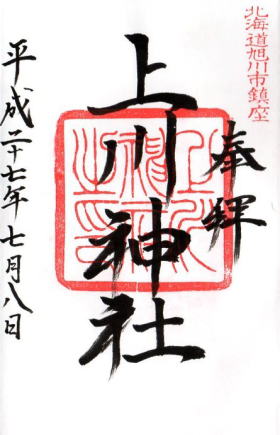 北海道旭川市鎮座
奉拝
上川神社
上川神社之印
平成二十七年七月八日